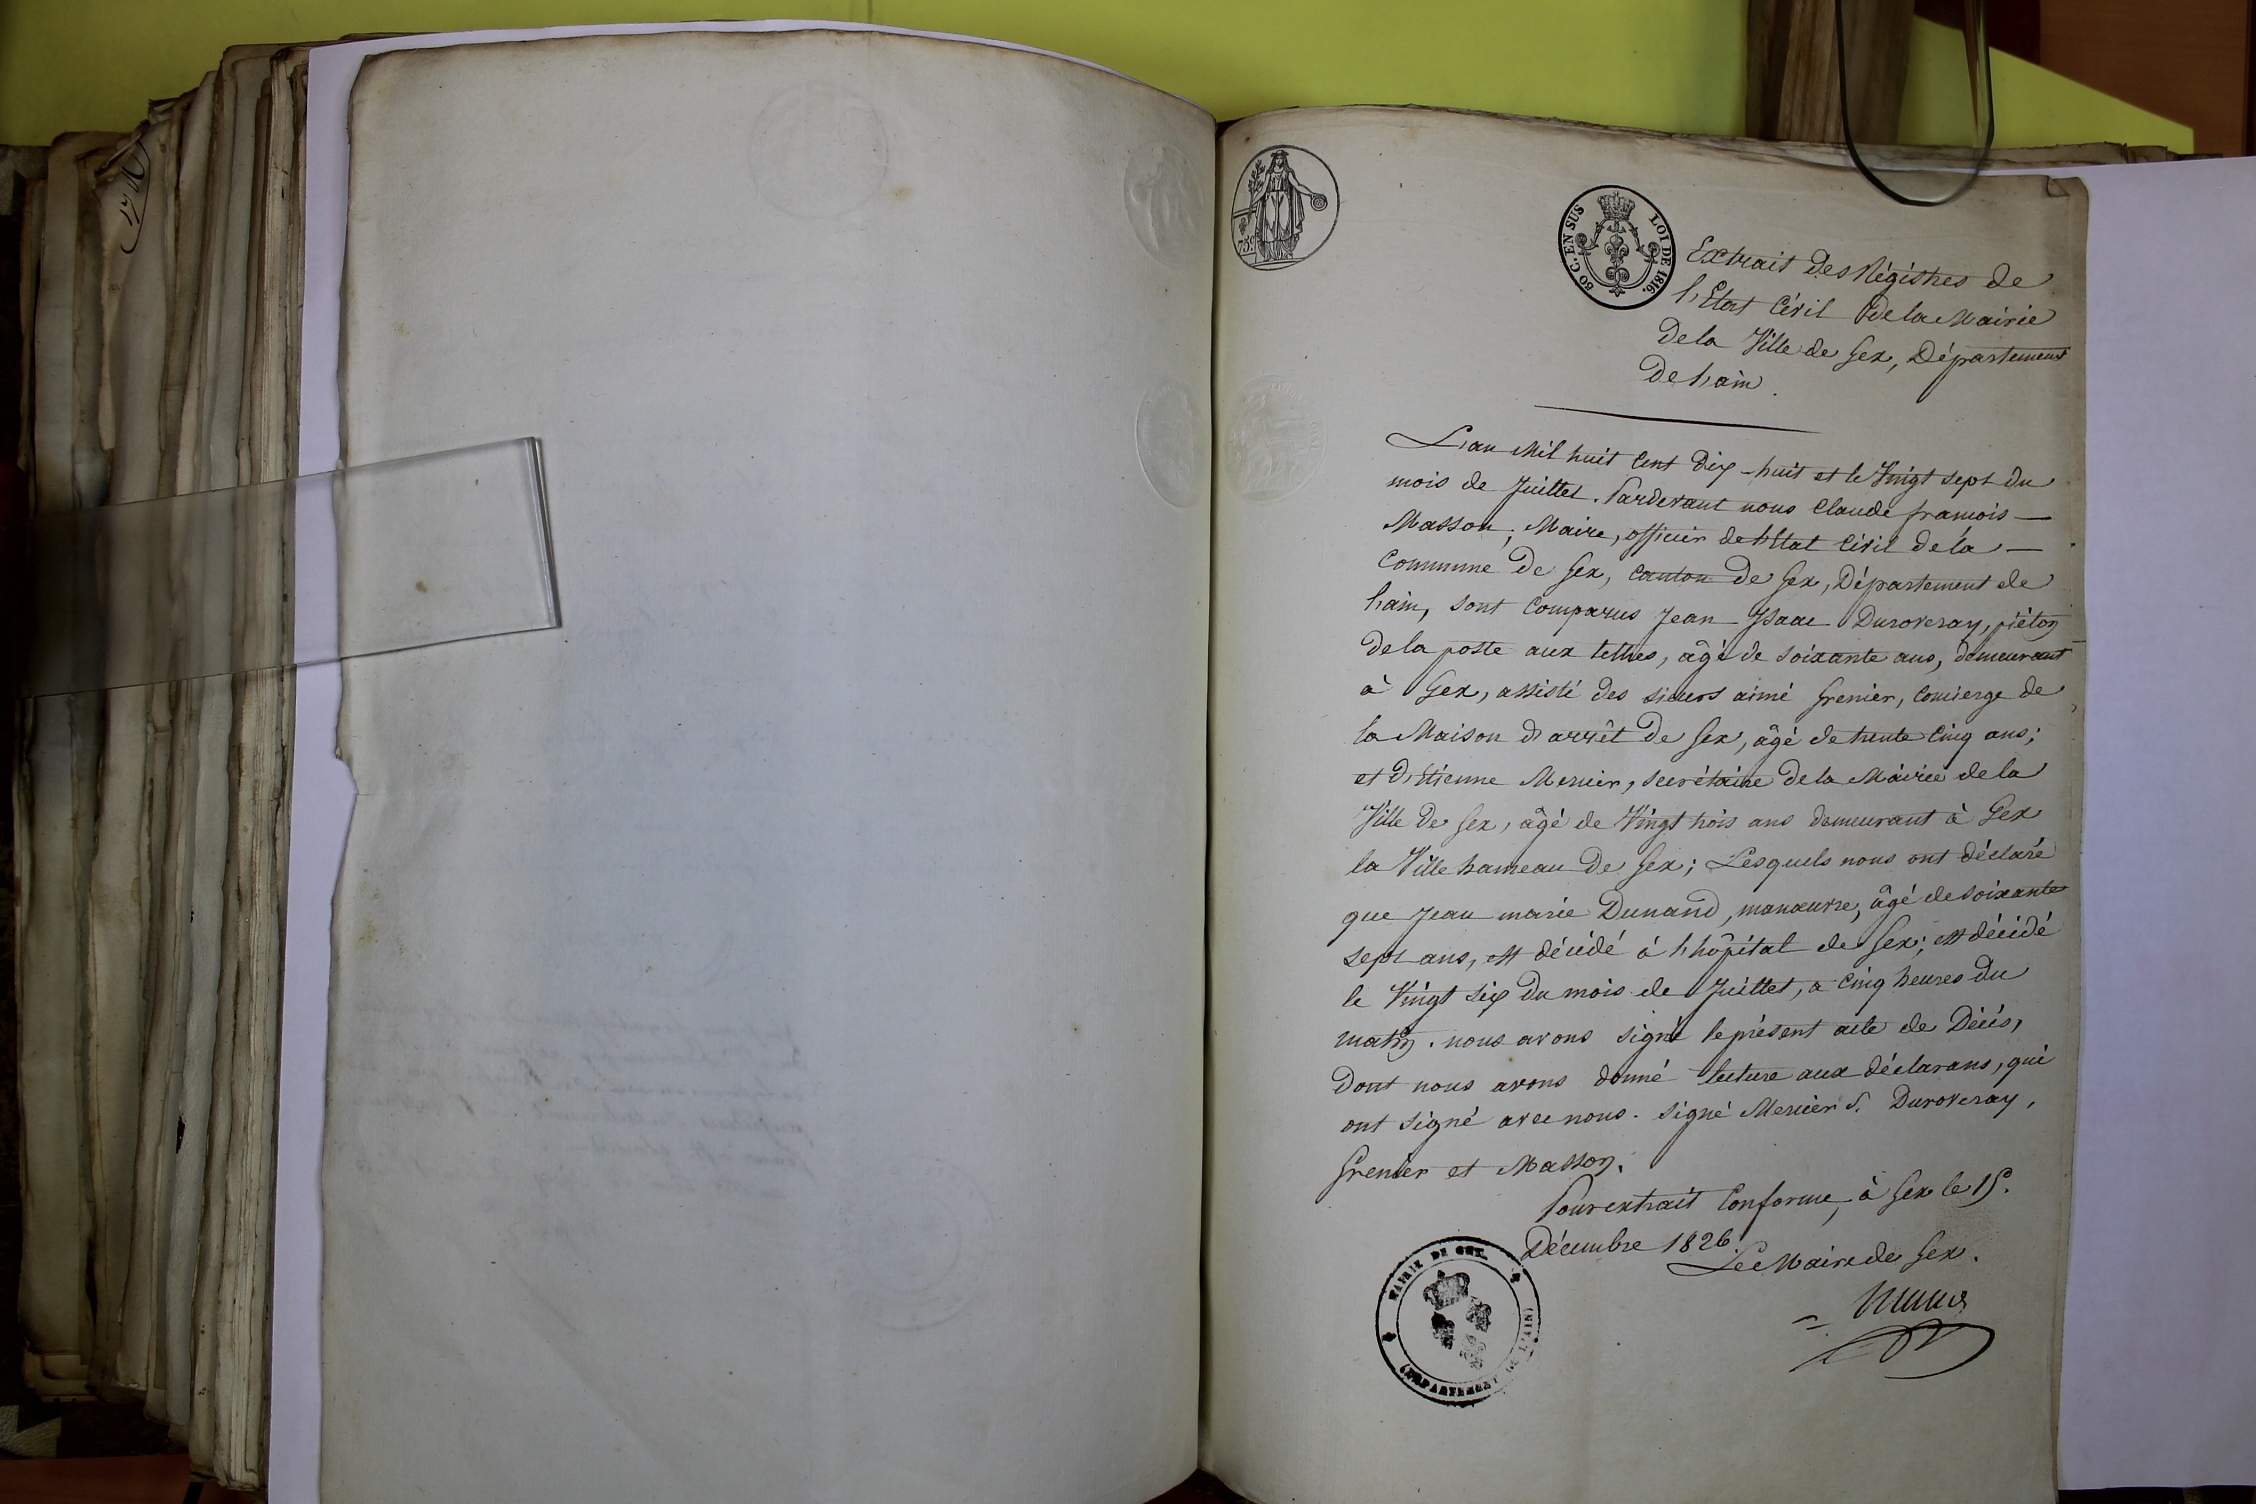 1741
75 c
80 C. EN SUS LOI DE 1816.
Extrait des Régistres de
l'Etat Civil de la Mairie
de la Ville de Gex, Département
de l'ain.
L'an Mil huit Cent Dix-huit et le Vingt sept du
mois de Juillet. Pardevant nous Claude françois
Masson, Maire, officier de l'Etat Civil de la
Commune de Gex, Canton de Gex, Département de
l'ain, sont Comparus Jean Isaac Duroveray, piéton
de la poste aux lettres, âgé de soixante ans, demeurant
à Gex, assisté des sieurs aimé Grenier, Concierge de
la Maison d'arrêt de Gex, âgé de trente Cinq ans;
et d'Etienne Mercier, secrétaire de la Mairie de la
Ville de Gex, âgé de Vingt trois ans demeurant à Gex
la Ville hameau de Gex; Lesquels nous ont déclaré
que Jean marie Dunand, manœuvre, âgé de soixante
sept ans, est décédé à l'hôpital de Gex; est décédé
le Vingt six du mois de Juillet, a Cinq heures du
matin. nous avons signé le présent acte de Décès,
Dont nous avons donné lecture aux déclarans, qui
ont signé avec nous. signé Mercier S. Duroveray,
Grenier et Masson.
Pour extrait Conforme, à Gex le 15.
Décembre 1826.
Le Maire de Gex.
MAIRIE DE GEX.
(DÉPARTEMENT DE L'AIN)